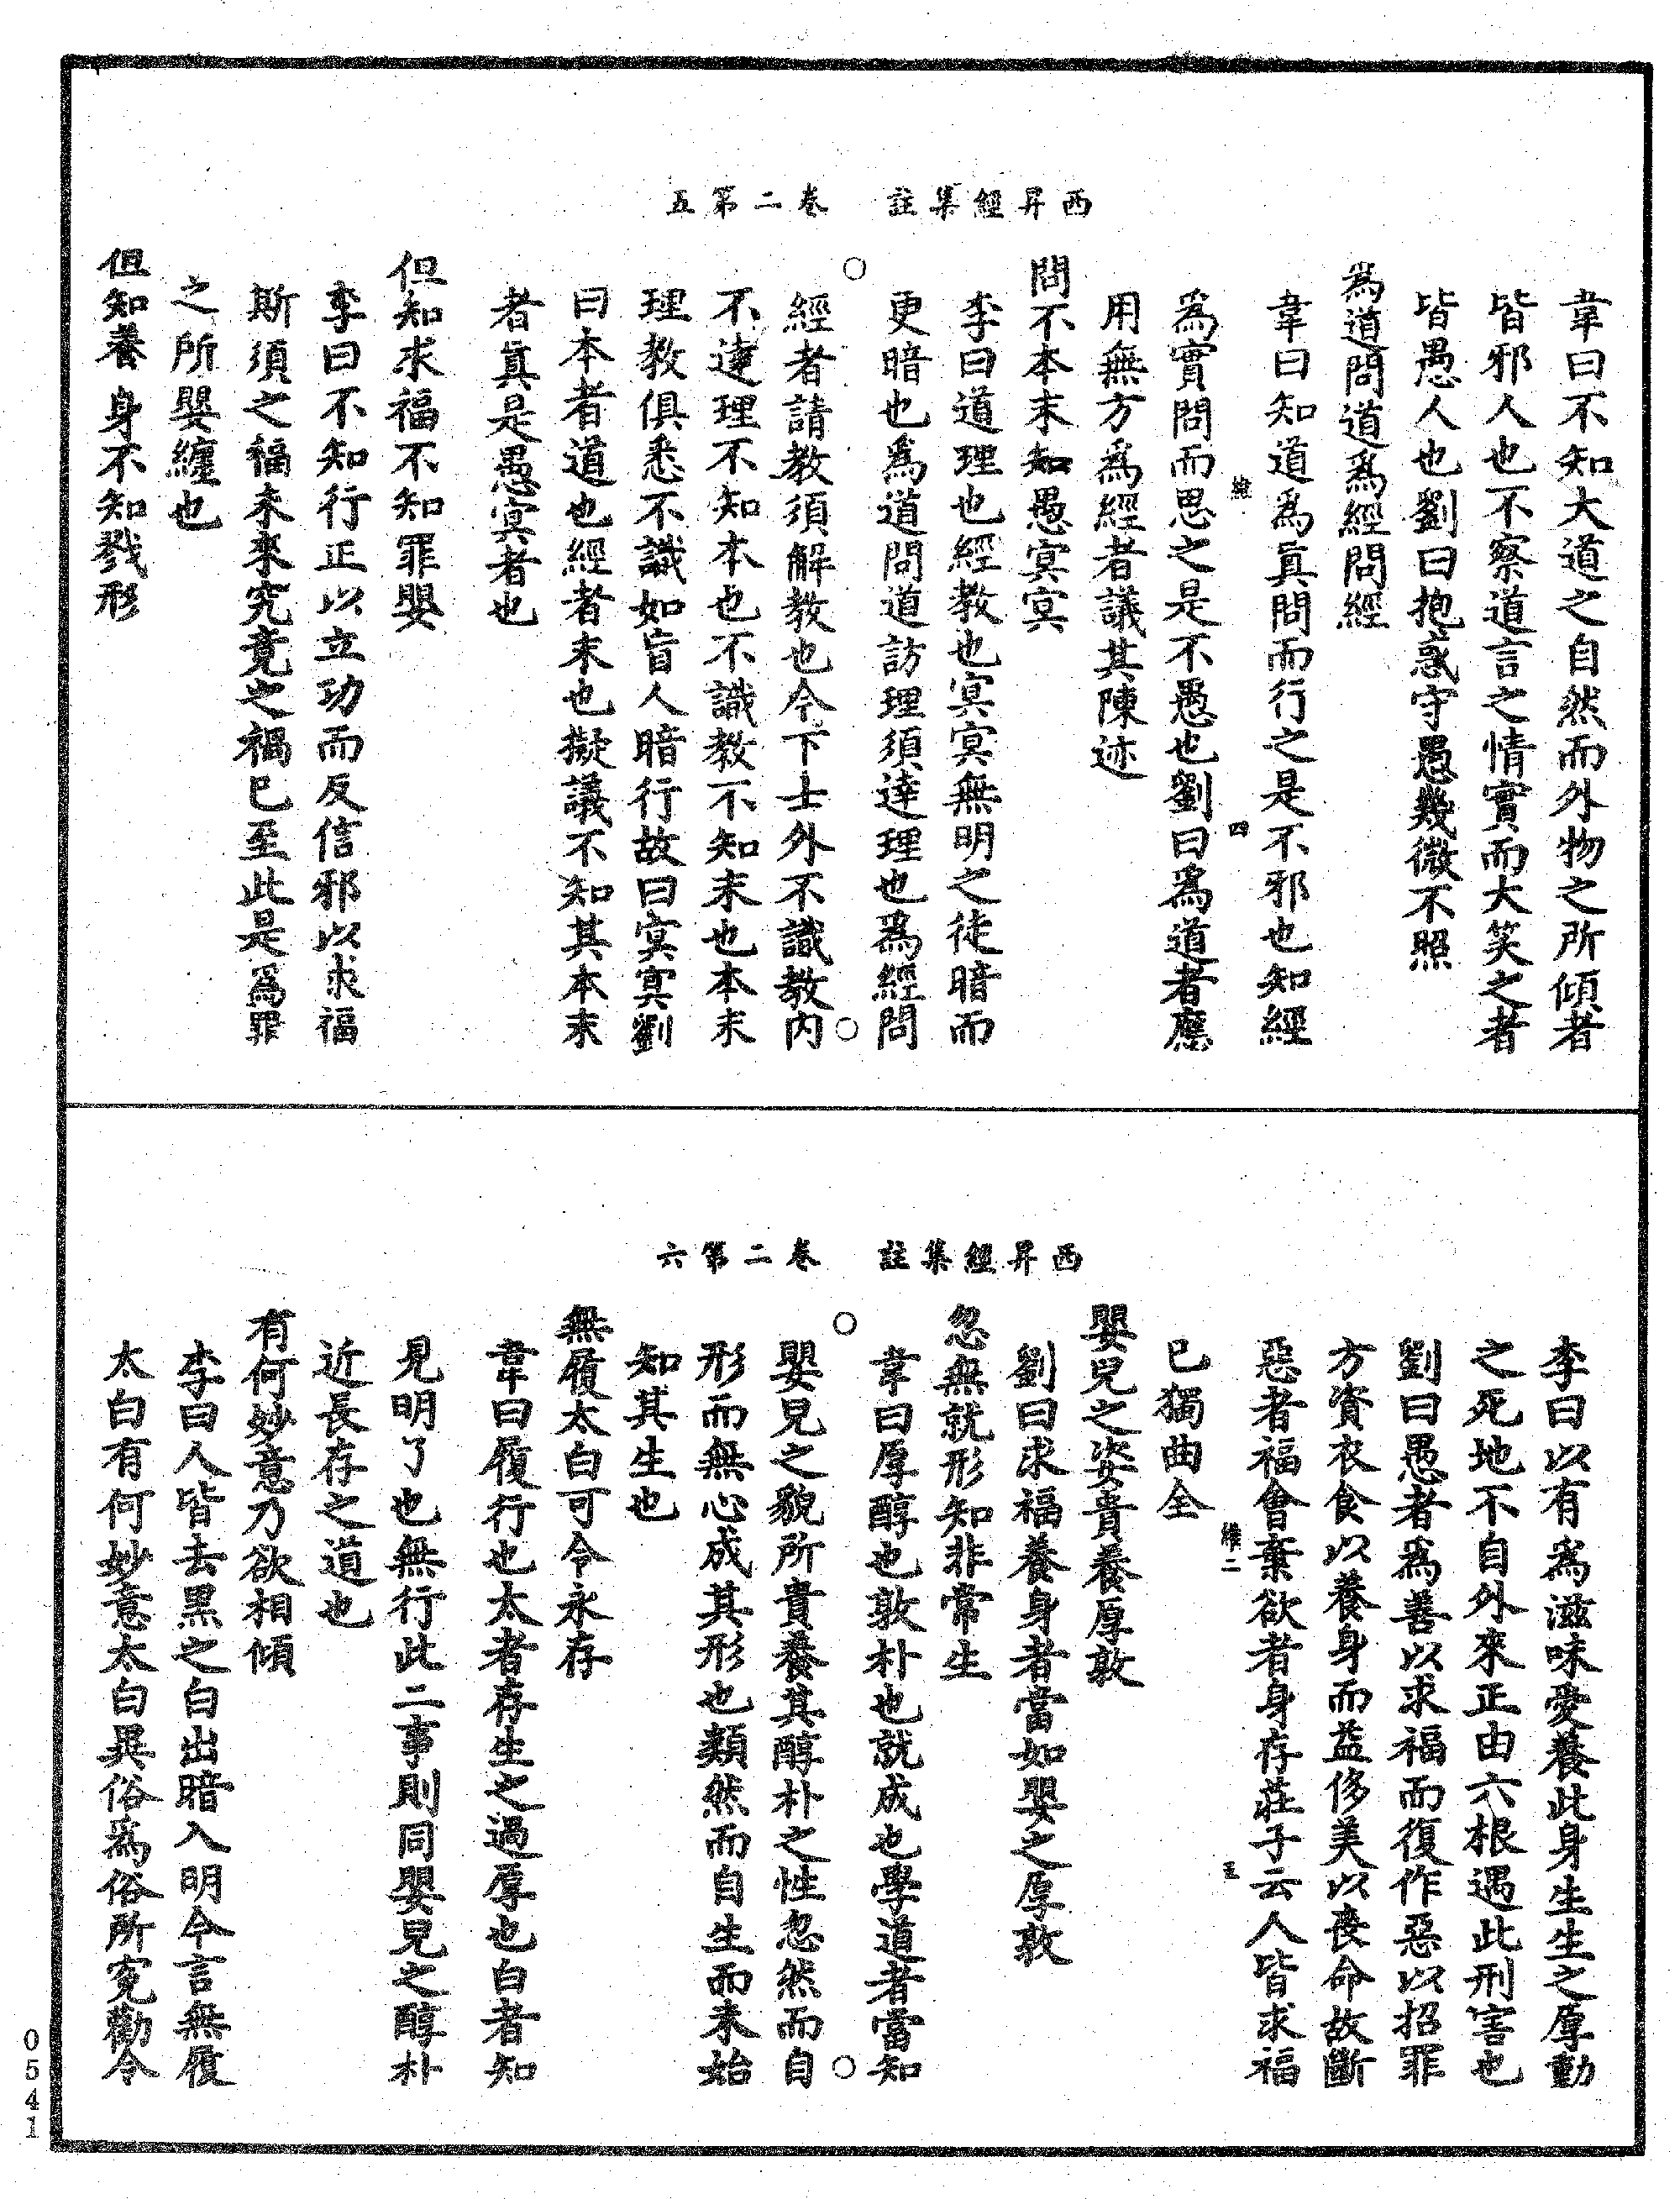 西昇經集註　卷二第五
韋曰不知大道之自然而外物之所傾者
皆邪人也不察道言之情實而大笑之者
皆愚人也劉曰抱惑守愚幾微不照
為道問道為經問經
韋曰知道為真問而行之是不邪也知經
維　四
為實問而思之是不愚也劉曰為道者應
用無方為經者議其陳迹
問不本末知愚冥冥
李曰道理也經教也冥冥無明之徒暗而
更暗也為道問道訪理須達理也為經問
經者請教須解教也今下士外不識教內
不達理不知本也不識教不知末也本末
理教俱悉不識如盲人暗行故曰冥冥劉
曰本者道也經者末也擬議不知其本末
者真是愚冥者也
但知求福不知罪嬰
李曰不知行正以立功而反信邪以求福
斯須之福未來究竟之禍已至此是為罪
之所嬰纏也
但知養身不知戮形
西昇經集註　卷二第六
李曰以有為滋味愛養此身生生之厚動
之死地不自外來正由六根遇此刑害也
劉曰愚者為善以求福而復作惡以招罪
方資衣食以養身而益侈美以喪命故斷
惡者福會棄欲者身存莊子云人皆求福
維二　五
已獨曲全
嬰兒之姿貴養厚敦
劉曰求福養身者當如嬰之厚敦
忽無就形知非常生
韋曰厚醇也敦朴也就成也學道者當知
嬰兒之貌所貴養其醇朴之性忽然而自
形而無心成其形也類然而自生而未始
知其生也
無履太白可令永存
韋曰履行也太者存生之過厚也白者知
見明了也無行此二事則同嬰兒之醇朴
近長存之道也
有何妙意乃欲相傾
李曰人皆去黑之白出暗入明今言無履
太白有何妙意太白異俗為俗所寃勸令
0541